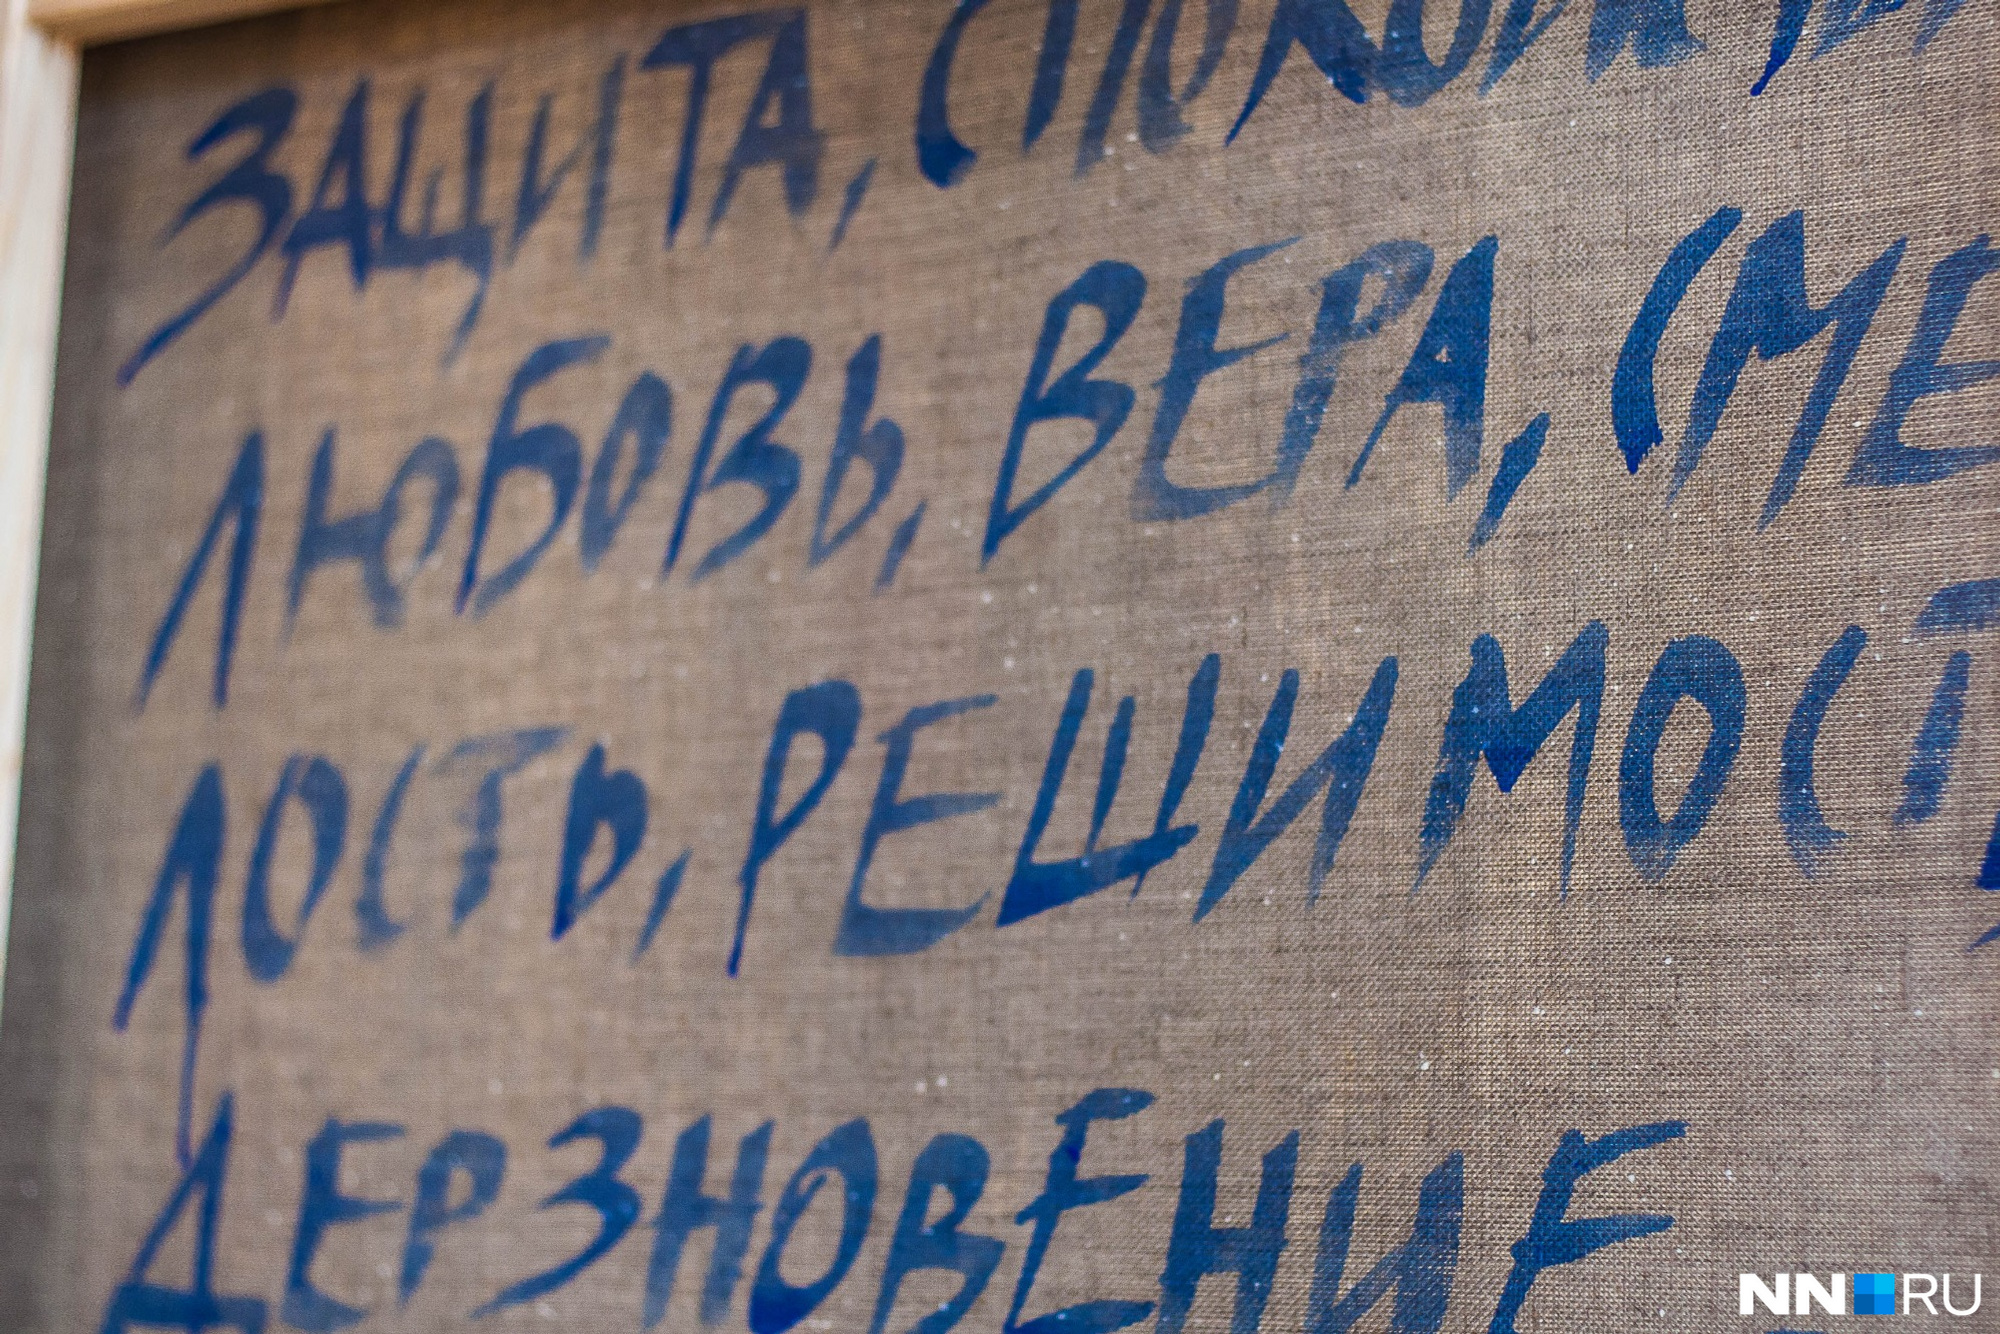 ЗАЩИТА, СПОКОЙ
ЛЮБОВЬ, ВЕРА, СМЕ
ЛОСТЬ, РЕШИМОСТ
ДЕРЗНОВЕНИЕ
NN RU